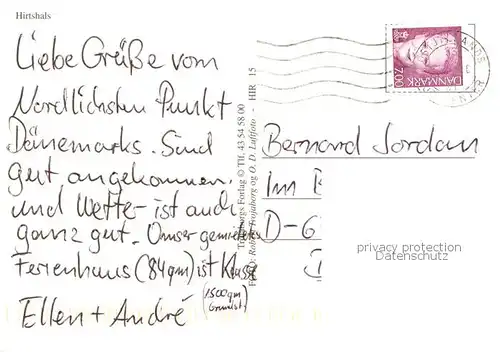 Hirtshals
Liebe Grüße vom
Nordlichsten Punkt
Dänemarks. Sind
gut angekommen
und Wetter ist auch
ganz gut. Unser gemietetes
Ferienhaus (84qm) ist Klasse
(1500qm
Grundst.)
Ellen + André
Forlag © Tlf. 43 54 58 00
og O. D. Luftfoto - HIR 15
DANMARK
7.00
Bernard Jordan
Im
D-6
privacy protection
Datenschutz